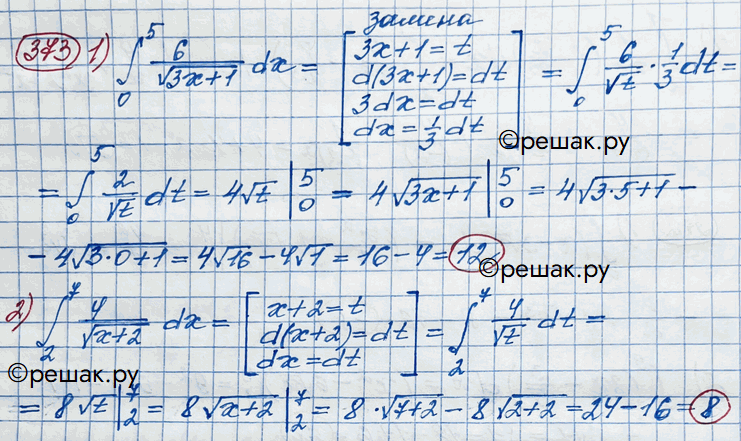 замена
373 1) ∫₀⁵ 6/√(3x+1) dx = [3x+1=t
d(3x+1)=dt
3dx=dt
dx=1/3 dt] = ∫₀⁵ 6/√t · 1/3 dt =
©решак.ру
= ∫₀⁵ 2/√t dt = 4√t |₀⁵ = 4√(3x+1) |₀⁵ = 4√(3·5+1) -
- 4√(3·0+1) = 4√16 - 4√1 = 16 - 4 = 12
©решак.ру
2) ∫₂⁷ 4/√(x+2) dx = [x+2=t
d(x+2)=dt
dx=dt] = ∫₂⁷ 4/√t dt =
©решак.ру
= 8√t |₂⁷ = 8√(x+2) |₂⁷ = 8·√(7+2) - 8√(2+2) = 24 - 16 = 8